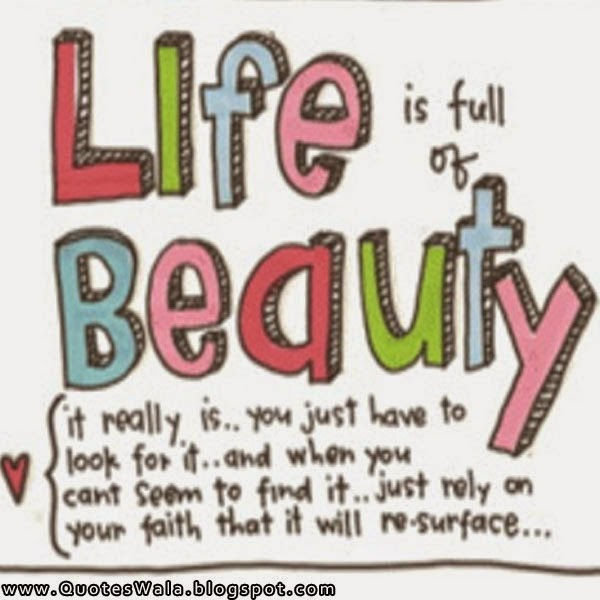 LIfe is full
of
Beauty
it really is.. you just have to
look for it..and when you
cant seem to find it..just rely on
your faith that it will re-surface...
www.QuotesWala.blogspot.com